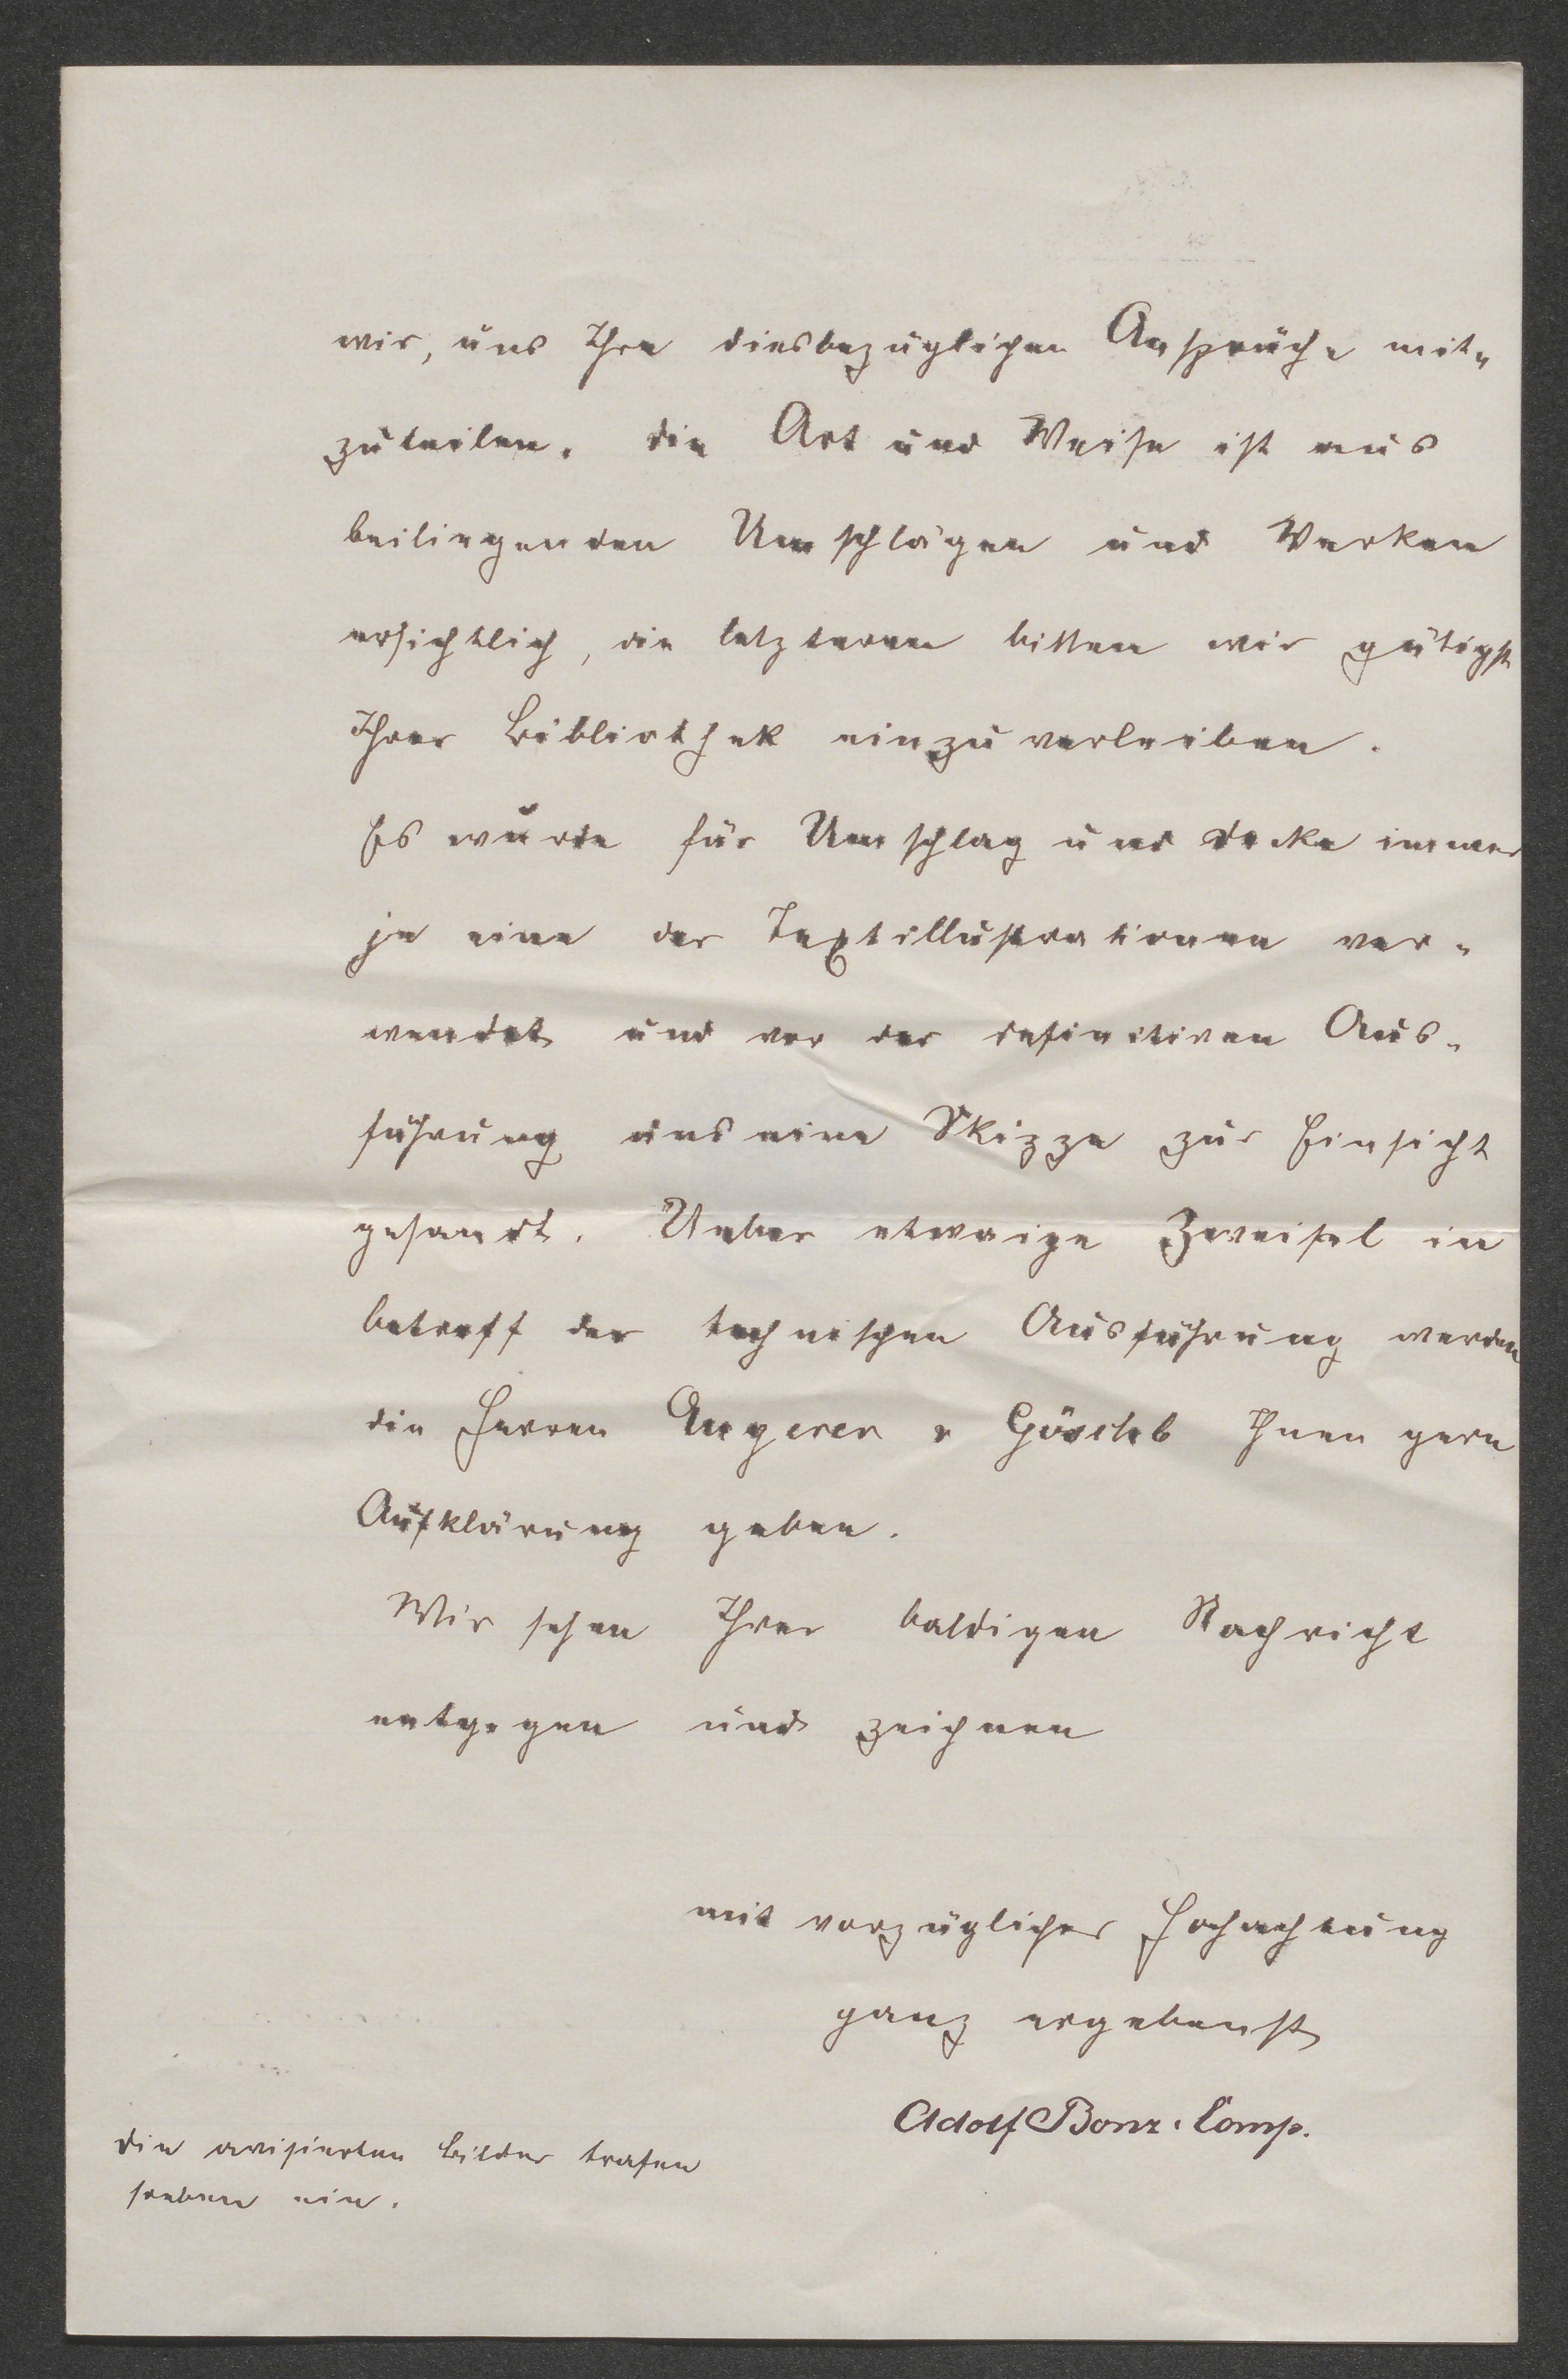 wir, uns Ihre diesbezüglichen Ansprüche mit-
zuteilen. Die Art und Weise ist aus
beiliegenden Umschlägen und Werken
ersichtlich, die letzteren bitten wir gütigst
Ihrer Bibliothek einzuverleiben.
Es wurde für Umschlag und Decke immer
je eine der Textillustrationen ver-
wendet und vor der definitiven Aus-
führung uns eine Skizze zur Einsicht
gesandt. Ueber etwaige Zweifel in
betreff der technischen Ausführung werden
die Herren Angerer & Göschl Ihnen gern
Aufklärung geben.
Wir sehen Ihrer baldigen Nachricht
entgegen und zeichnen
mit vorzüglicher Hochachtung
ganz ergebenst
Adolf Bonz & Comp.
Die avisierten Bilder trafen
soeben ein.